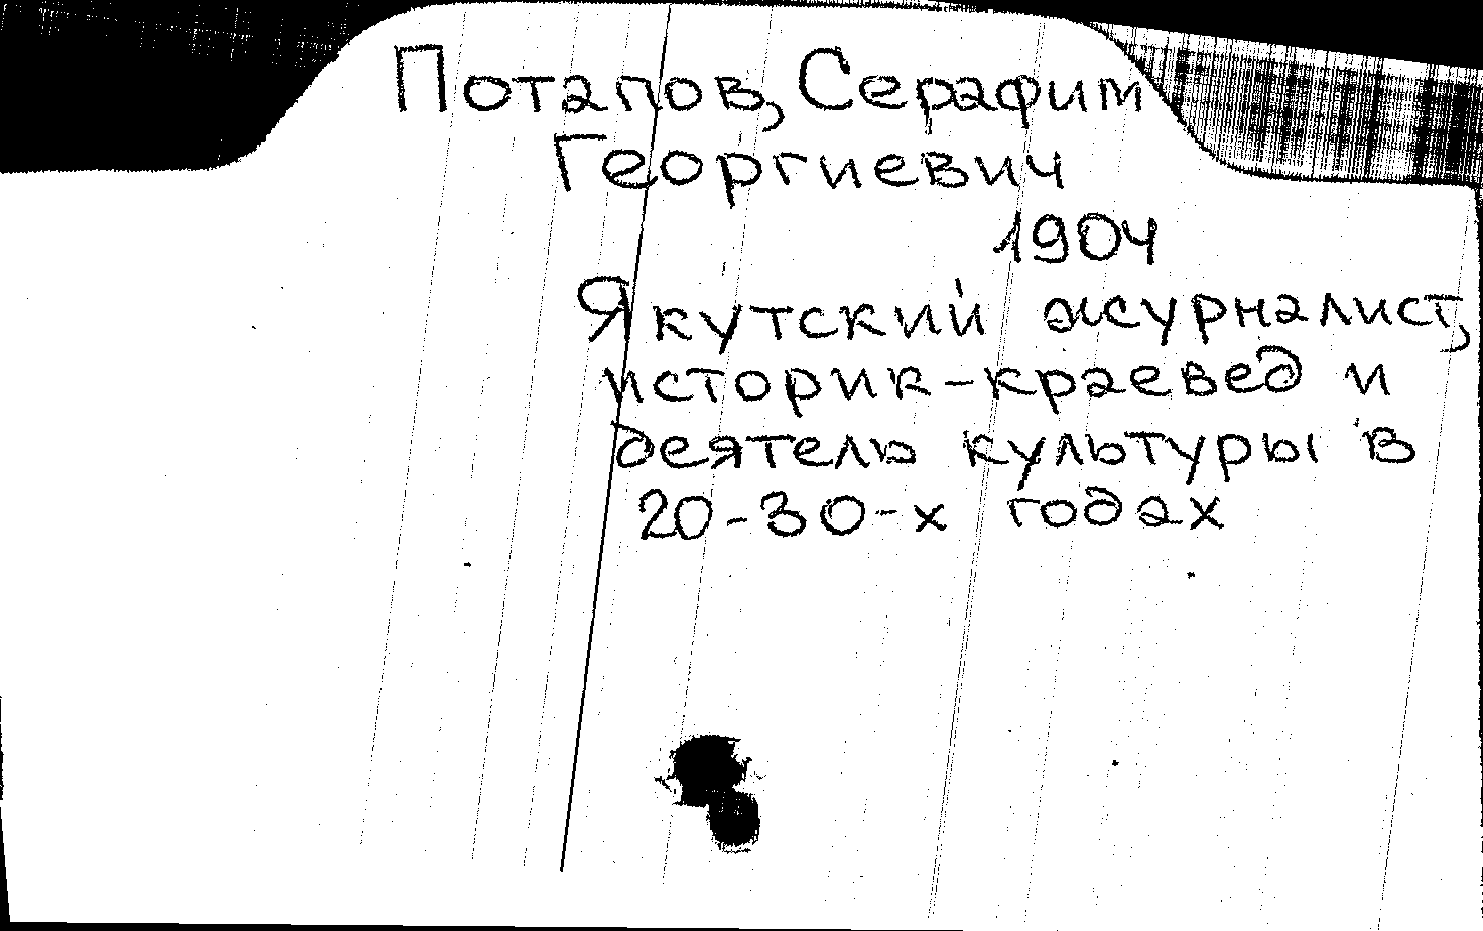 Потапов, Серафим
Георгиевич
1904
Якутский журналист,
историк-краевед и
деятель культуры в
20-30-х годах